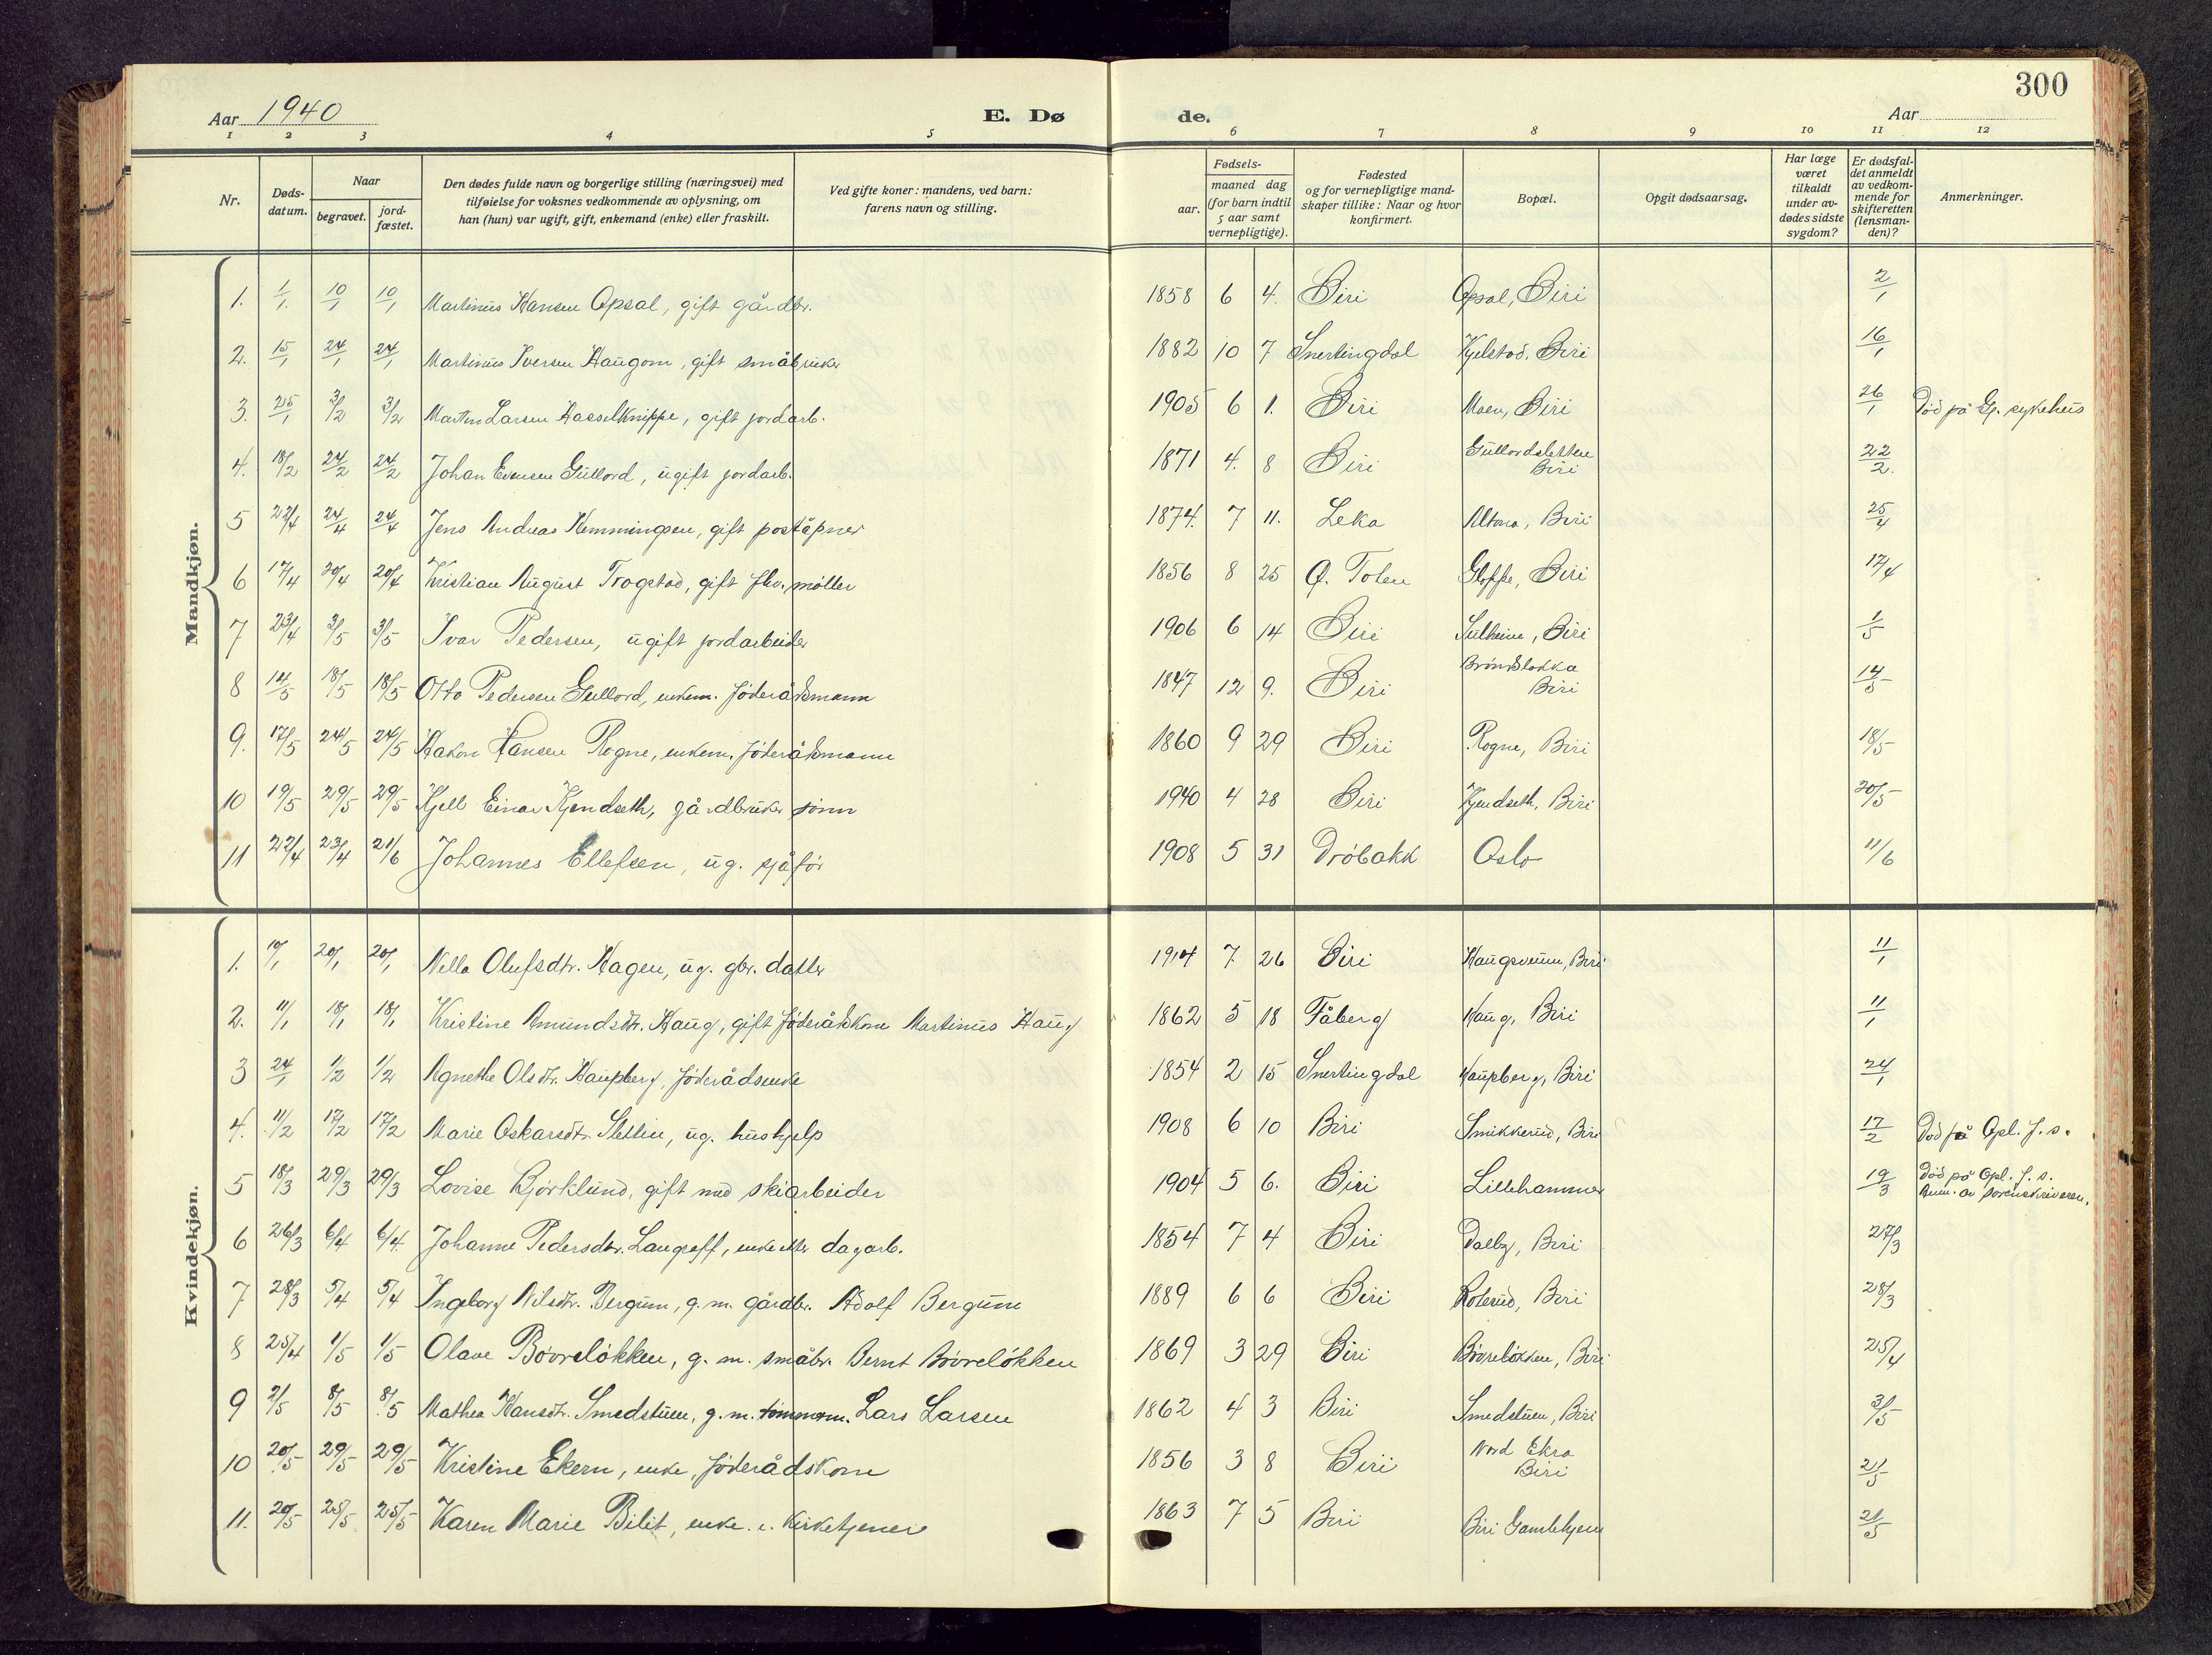 300
Aar 1940
E. Dø
de.
Aar
1 2 3 4 5 6 7 8 9 10 11 12
Nr.
Døds-
datum.
Naar
begravet.
jord-
fæstet.
Den dødes fulde navn og borgerlige stilling (næringsvei) med
tilføielse for voksnes vedkommende av oplysning, om
han (hun) var ugift, gift, enkemand (enke) eller fraskilt.
Ved gifte koner: mandens, ved barn:
farens navn og stilling.
Fødsels-
aar.
maaned dag
(for barn indtil
5 aar samt
vernepligtige).
Fødested
og for vernepligtige mand-
skaper tillike: Naar og hvor
konfirmert.
Bopæl.
Opgit dødsaarsag.
Har læge
været
tilkaldt
under av-
dødes sidste
sygdom?
Er dødsfal-
det anmeldt
av vedkom-
mende for
skifteretten
(lensman-
den)?
Anmerkninger.
Mandkjøn.
1. 1/1. 10/1 10/1 Martinus Hansen Opsal, gift gårdbr. 1858 6 4. Biri Opsal, Biri 2/1
2. 15/1 24/1 24/1 Martinus Iversen Haugom, gift småbruker 1882 10 7 Snertingdal Kjelstad, Biri 16/1
3. 25/1 3/2 3/2 Martin Larsen Hasselknippe, gift jordarb. 1905 6 1. Biri Moen, Biri 26/1 Død på Gj. sykehus
4. 18/2 24/2 24/2 Johan Evensen Gullord, ugift jordarb. 1871 4. 8 Biri Gullordsletten Biri 22/2.
5 22/4 24/4 24/4 Jens Andreas Hemmingsen, gift poståpner 1874. 7 11. Leka Altona, Biri 25/4
6 17/4 20/4 20/4 Kristian August Trogstad, gift fhv. møller 1856 8 25 Ø. Toten Gloppe, Biri 17/4
7 23/4 3/5 3/5 Ivar Pedersen, ugift jordarbeider 1906 6 14 Biri Sulheim, Biri 1/5
8 14/5 18/5 18/5 Otto Pedersen Gullord, enkem. föderådsmann 1847 12 9. Biri Biri 14/5
9. 17/5 24/5 24/5 Hakon Hansen Rogne, enkem. föderådsmann 1860 9 29 Biri Rogne, Biri 18/5
10 19/5 29/5 29/5 Kjell Einar Kjendseth, gårdbruker sönn 1940 4 28 Biri Kjendseth, Biri 20/5
11 22/4 23/4 21/6 Johannes Ellefsen, ug. sjåför 1908 5 31 Dröbakk Oslo 11/6
Kvindekjøn.
1. 10/1 20/1 20/1 Nella Olufsdtr. Hagen, ug. gbr. datter 1914 7. 26 Biri Haugsveum, Biri 11/1
2. 11/1 18/1 18/1 Kristine Amundsdtr. Haug, gift föderådskone Martinus Haug 1862 5 18 Fåberg Haug, Biri 11/1
3 24/1 1/2 1/2 Agnethe Olsdtr. Haugsberg, föderådsenke 1854 2 15 Snertingdal Haugsberg, Biri 24/1
4. 11/2 17/2 17/2 Marie Oskarsdtr. Sletten, ug. hushjelp 1908 6 10 Biri Smikkerud, Biri 17/2 Død på Opl. f. s.
5 18/3 29/3 29/3 Lovise Björklund, gift med skiarbeider 1904 5 6. Biri Lillehammer 19/3 Død på Opl. f. s.
Anm. av sorenskriveren.
6 26/3 6/4 6/4. Johanne Pedersdtr. enke etter dagarb. 1854 7 4 Biri Dalby, Biri 27/3
7 28/3 5/4 5/4 Ingeborg Nilsdtr. Bergum, g. m. gårdbr. Adolf Bergum 1889 6 6 Biri Roterud, Biri 28/3
8 25/4 1/5 1/5 Olave Bövrelökken, g. m. småbr. Bernt Bövrelökken 1869 3 29 Biri Bövrelökken, Biri 25/4
9 2/5 8/5 8/5 Mathea Hansdtr. Smedstuen, g. m. tömmerm. Lars Larsen 1862 4 3 Biri Smedstuen, Biri 3/5
10 20/5 29/5 29/5 Kristine Ekern, enke, föderådskone 1856 3 8 Biri Nord Ekra Biri 21/5
11. 20/5 25/5 25/5 Karen Marie Bilit, enke e. Kirketjener 1863 7 5 Biri Biri Gamlehjem 21/5